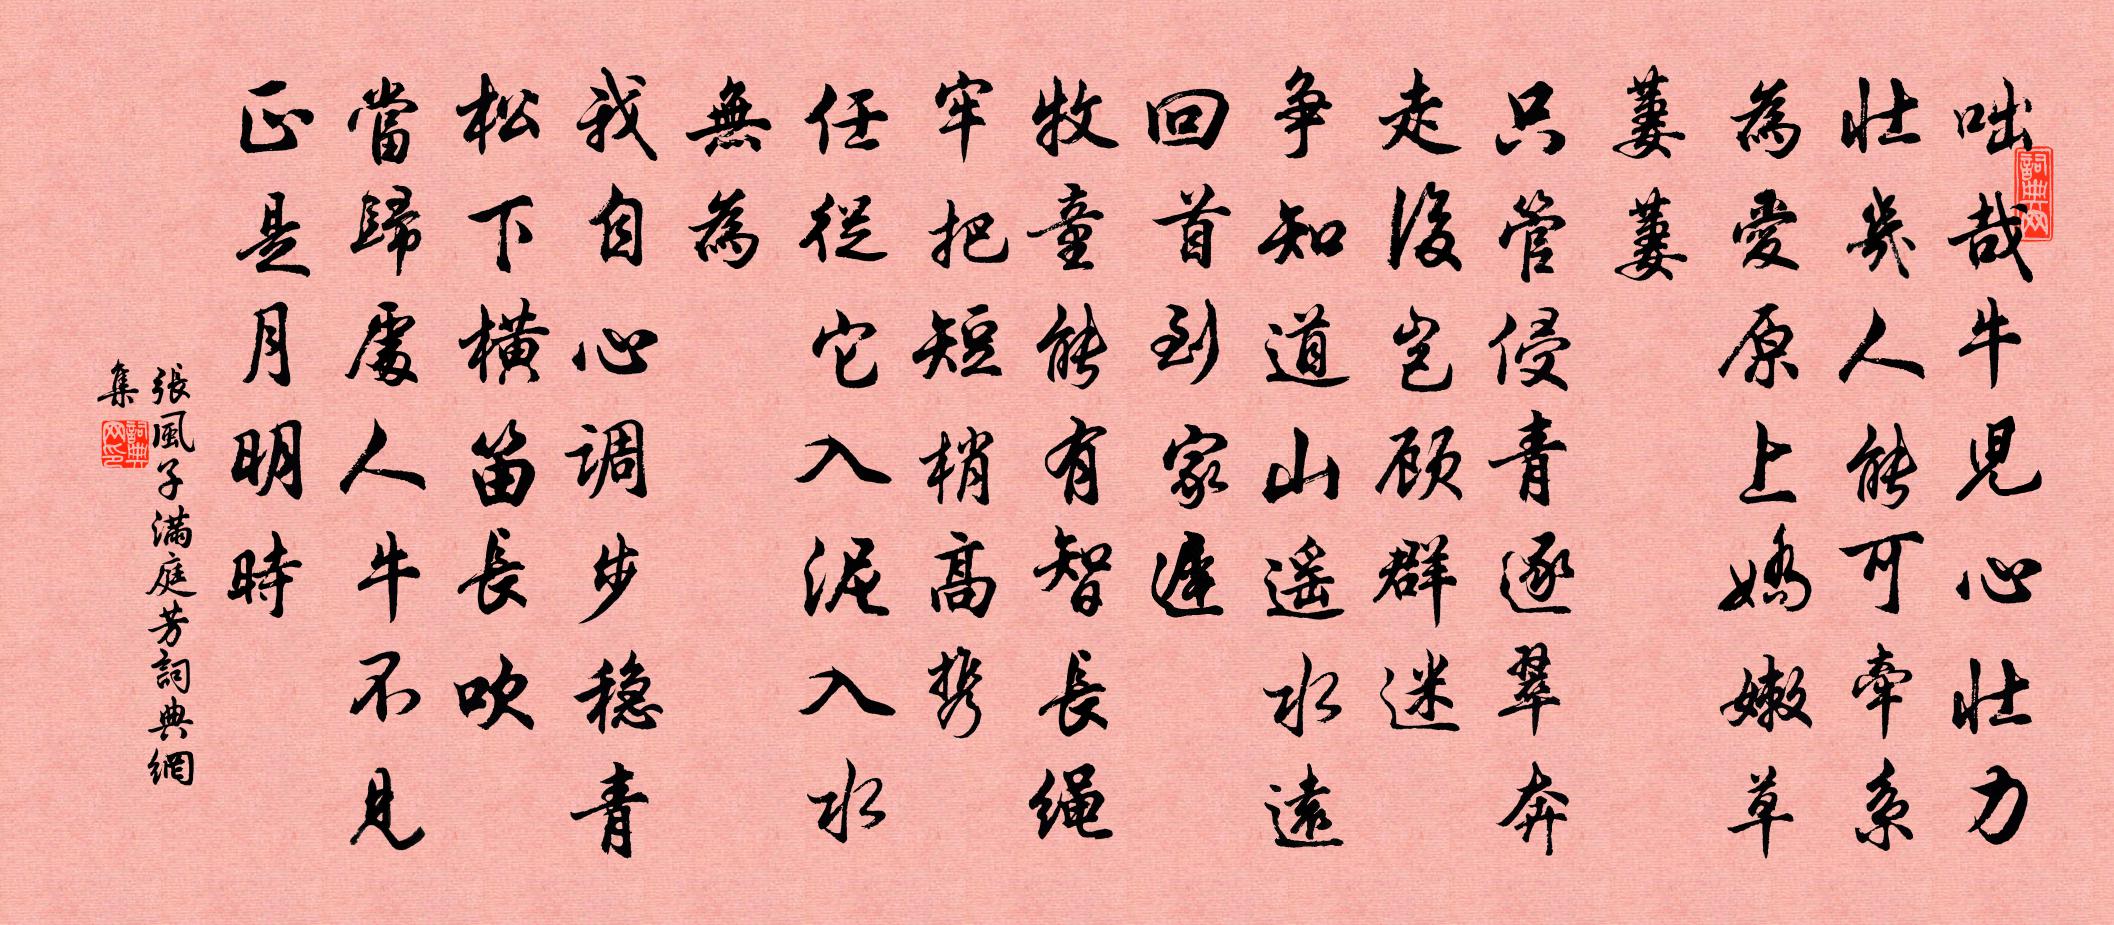 咄哉牛児心壮力
壮幾人能可牽系
為愛原上嬌嫩草
萋萋
只管侵青逐翠奔
走後岂顾群迷
争知道山遥水遠
回首到家遲
牧童能有智長绳
牢把短梢高携
任從它入泥入水
無為
我自心调步穏青
松下横笛長吹
當歸處人牛不見
正是月明時
張風子满庭芳詞典網
集
詞典网
詞典网印